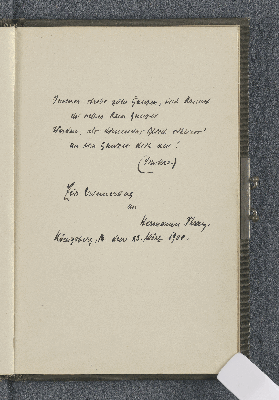 Immer strebe zum Ganzen, und kannst
du selber kein Ganzes
Werden, als dienendes Glied schliess'
an ein Ganzes dich an!
(Schiller)
Zur Erinnerung
an
Hermann
Königsberg, Pr. den 13. März 1901.